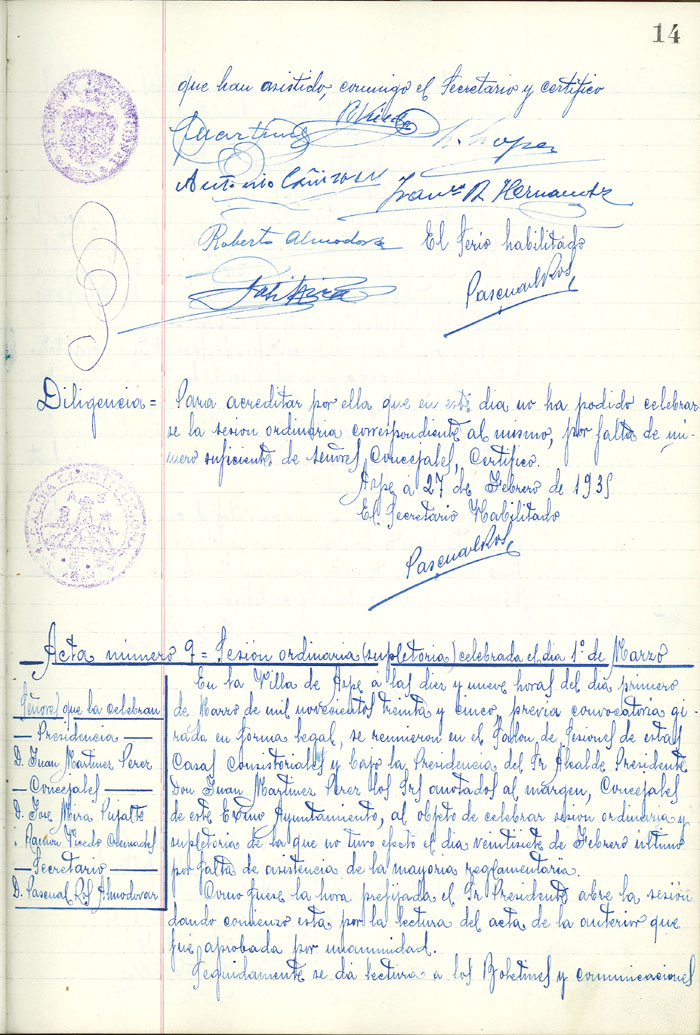 14
que han asistido, conmigo el Secretario y certifico
J. Martinez
L. Lopez
Antonio Cañizares
Fran.co A. Hernandez
Roberto Almodovar
El Serio habilitado
Pascual Ros
Diligencia = Para acreditar por ella que en este dia no ha podido celebrar-
se la sesion ordinaria correspondiente al mismo, por falta de nú-
mero suficiente de señores Concejales, Certifico.
Aspe a 27 de Febrero de 1935
El Secretario Habilitado
Pascual Ros
Acta número 9 = Sesión ordinaria (supletoria) celebrada el dia 1º de Marzo
Señores que la celebran
— Presidencia —
D. Juan Martinez Perez
— Concejales —
D. Jose Mira Pujalte
" Ramon Vicedo Cremades
— Secretario —
D. Pascual Ros Almodovar
En la Villa de Aspe a las diez y nueve horas del dia primero
de Marzo de mil novecientos treinta y cinco, previa convocatoria gi-
rada en forma legal, se reunieron en el Salon de Sesiones de estas
Casas Consistoriales y bajo la Presidencia del Sr Alcalde Presidente
Don Juan Martinez Perez los Srs anotados al margen, Concejales
de este Exmo Ayuntamiento, al objeto de celebrar sesion ordinaria y
supletoria de la que no tuvo efecto el dia veintisiete de Febrero ultimo
por falta de asistencia de la mayoria reglamentaria.
Como fuese la hora prefijada el Sr Presidente abre la sesión
dando comienzo esta por la lectura del acta de la anterior que
fue aprobada por unanimidad.
Seguidamente se dá lectura a los Boletines y comunicaciones